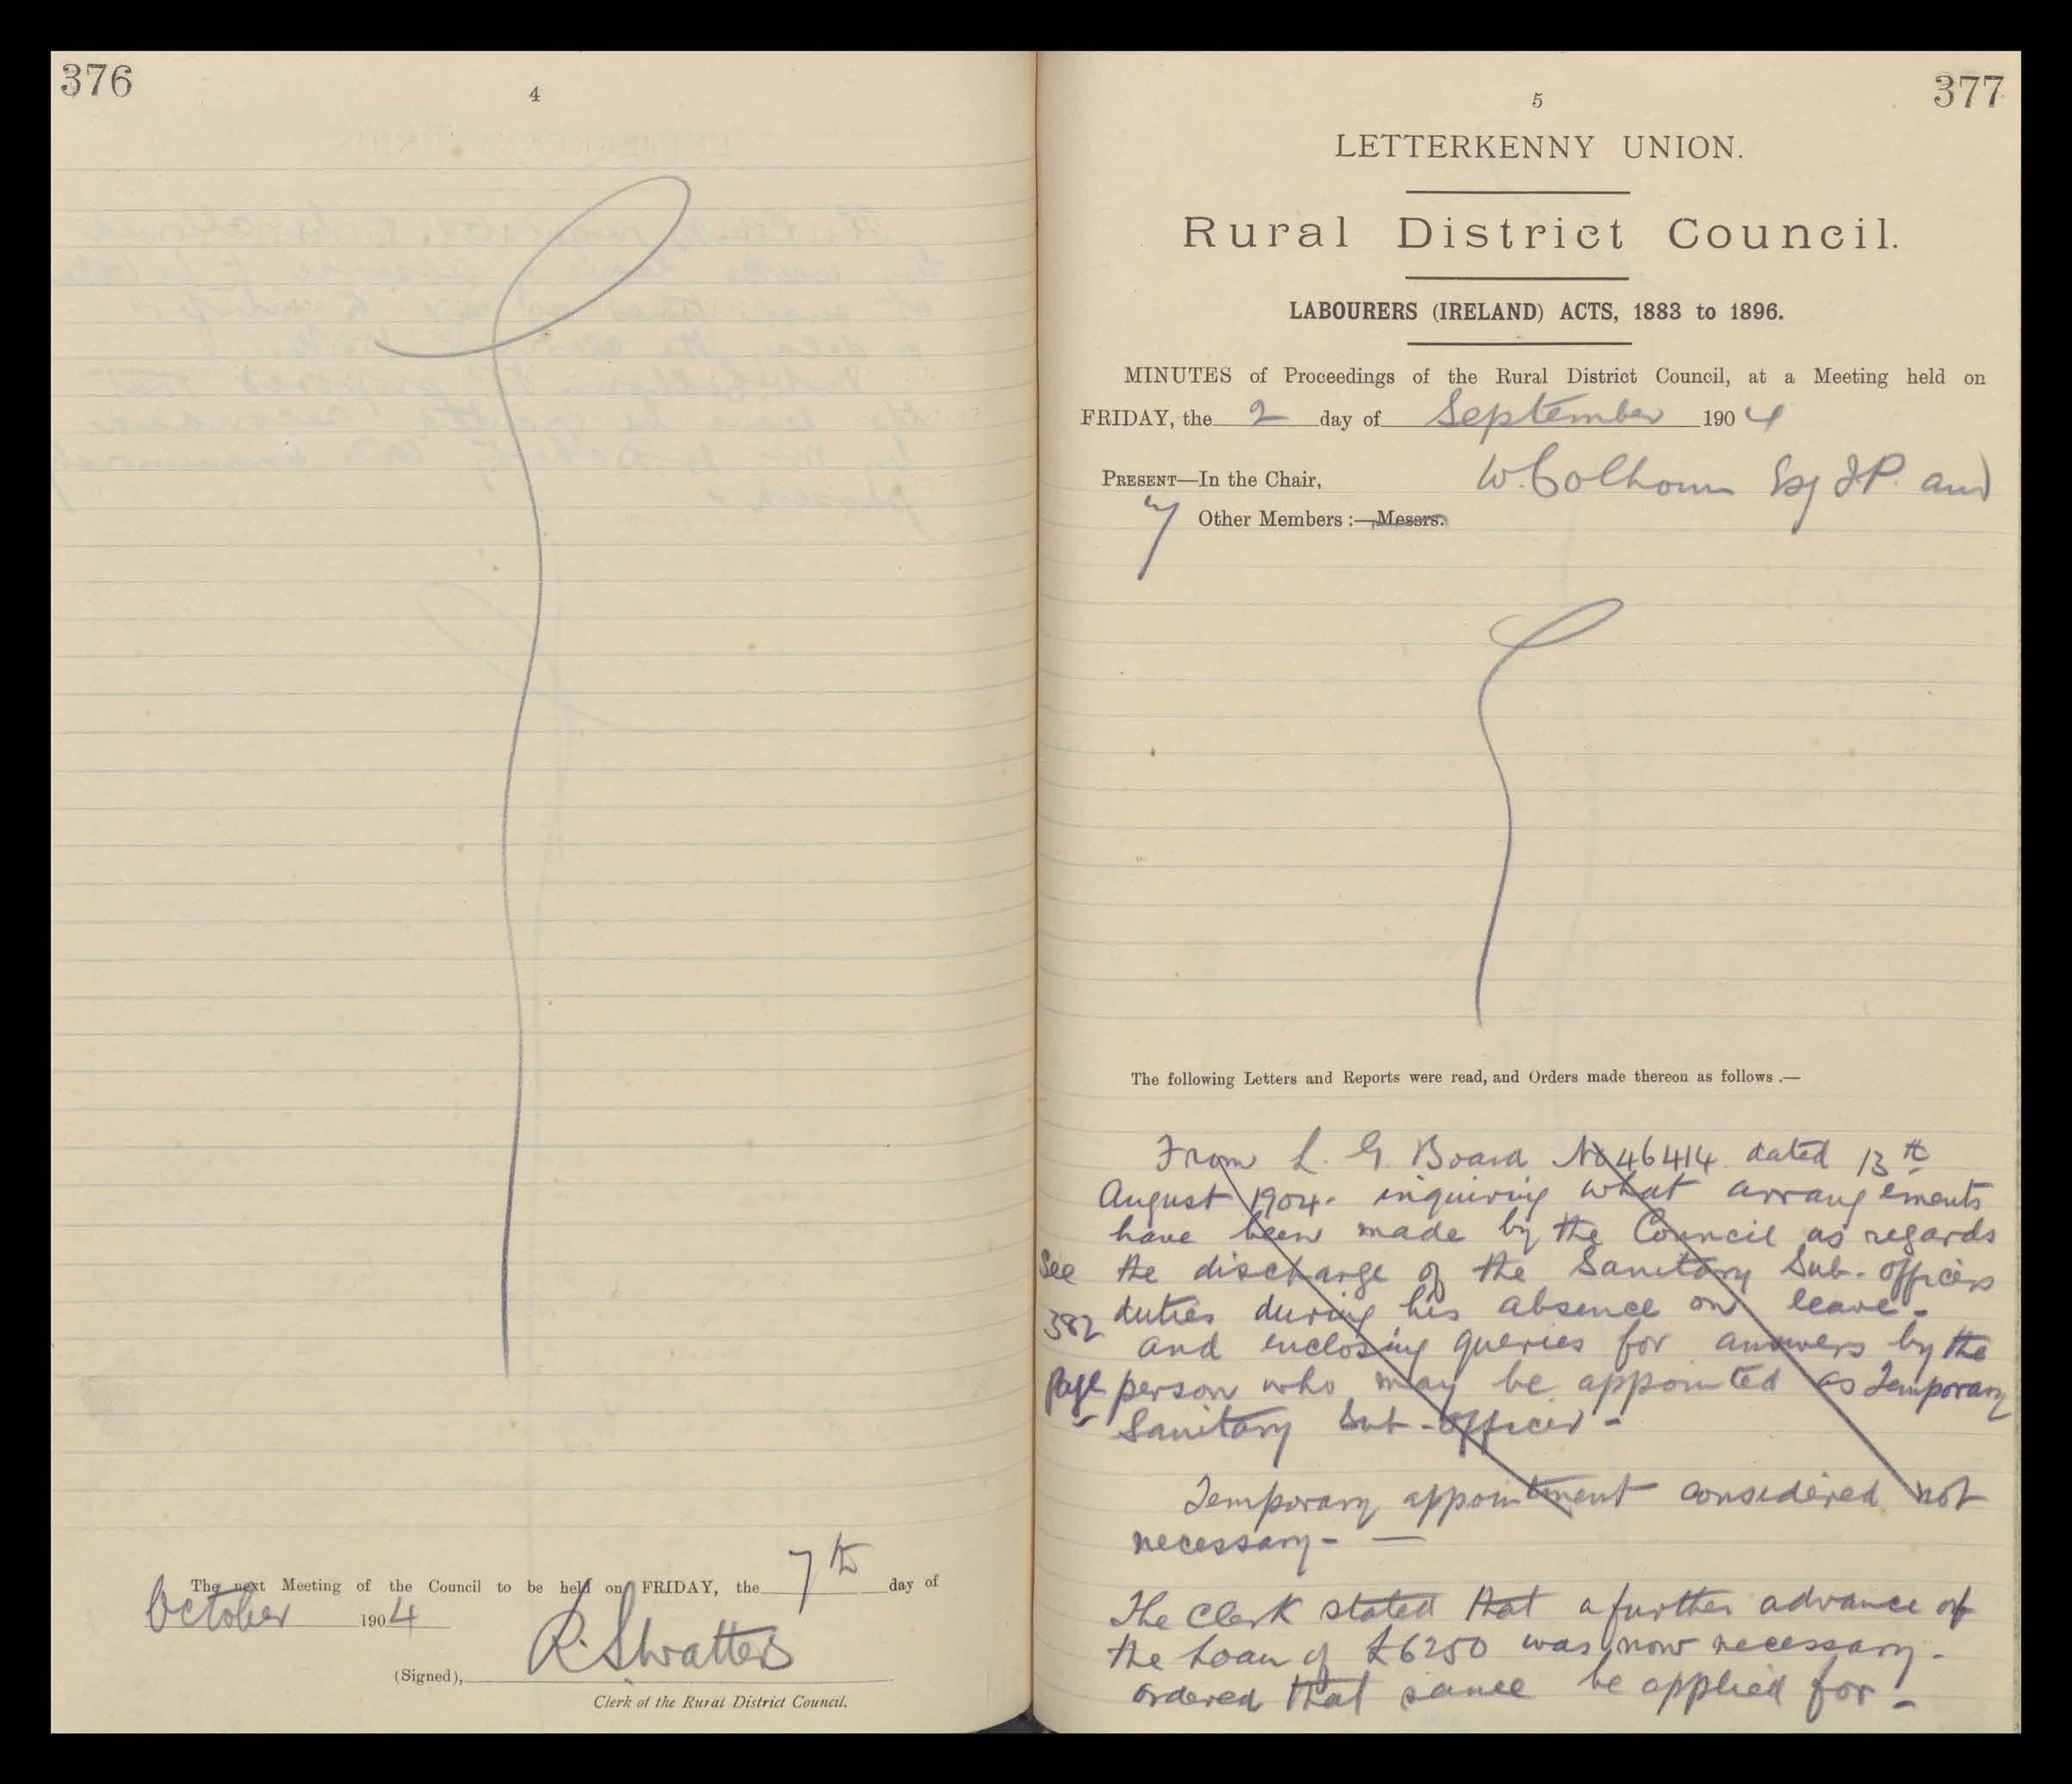 376
4
The next Meeting of the Council to be held on FRIDAY, the 7th day of
October 1904
(Signed),
Clerk of the Rural District Council.
377
5
LETTERKENNY UNION.
Rural District Council.
LABOURERS (IRELAND) ACTS, 1883 to 1896.
MINUTES of Proceedings of the Rural District Council, at a Meeting held on
FRIDAY, the 2 day of September 1904
PRESENT—In the Chair, W. Colhoun Esq J.P. and
7 Other Members :—Messrs.
The following Letters and Reports were read, and Orders made thereon as follows .—
From L. G. Board No 46414 dated 13th
August 1904. inquiring what arrangements
have been made by the Council as regards
See the discharge of the Sanitary Sub-officers
382 duties during his absence on leave -
and enclosing queries for answers by the
page person who may be appointed as Temporary
Sanitary Sub-officer -
Temporary appointment considered not
necessary - —
The Clerk stated that a further advance of
the Loan of £6250 was now necessary -
ordered that same be applied for -